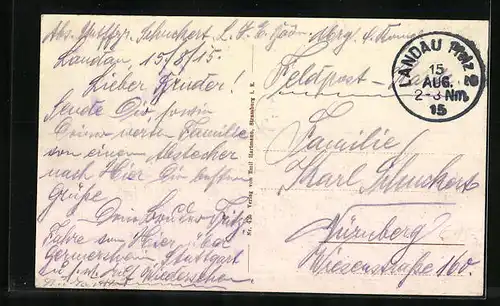 Landau, 15/8/15.
Lieber Bruder!
Sende Dir, sowie
Deiner werten Familie
von einem Abstecher
nach Hier die besten
Grüße
Dein Bruder Fritz
Fahre von Hier über
Germersheim Stuttgart
Auf Wiedersehen
Nr. Verlag von Emil Hartmann, Strassburg i. E.
Feldpost-
LANDAU Pfalz 2
15
AUG.
2-3 Nm.
15
Familie
Karl Schuchert
Nürnberg
Wiesenstraße 160.